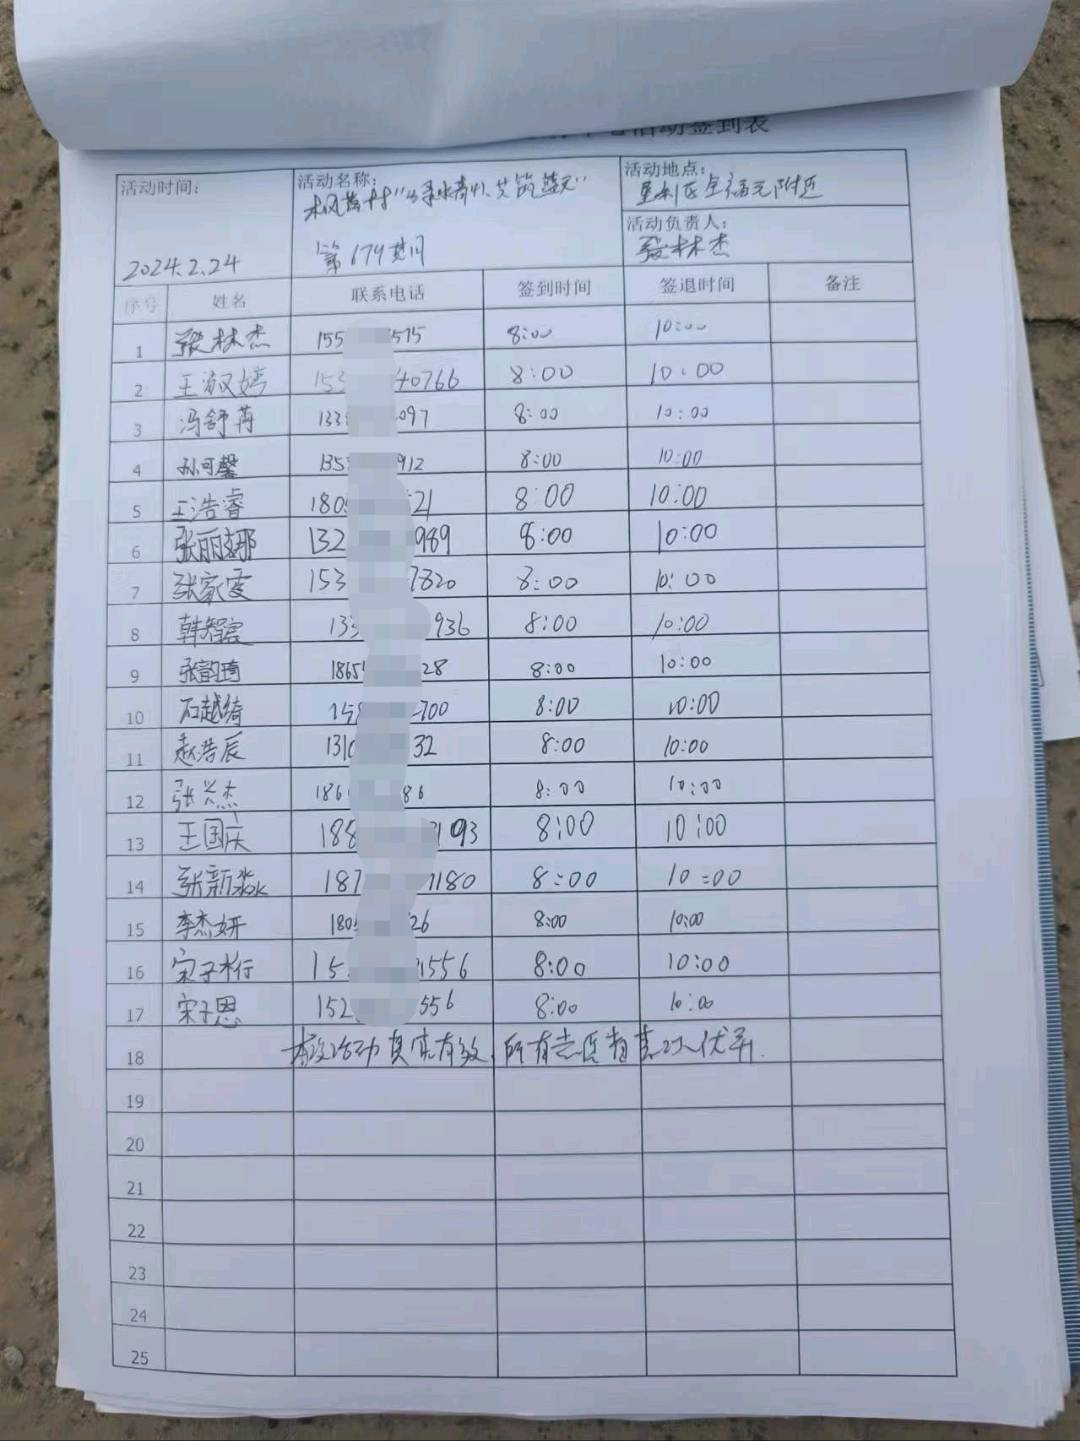 活动签到表
活动时间： 活动名称： 活动地点：
金福元附近
活动负责人：
2024.2.24 第679期 张林杰
序号 姓名 联系电话 签到时间 签退时间 备注
1 张林杰 155 575 8:00 10:00
2 王淑嫣 153 40766 8:00 10:00
3 冯舒苒 133 097 8:00 10:00
4 孙可馨 135 912 8:00 10:00
5 王浩睿 180 21 8:00 10:00
6 张丽娜 132 989 8:00 10:00
7 张家雯 153 7820 8:00 10:00
8 韩智宸 133 936 8:00 10:00
9 张韵琦 1865 28 8:00 10:00
10 石越绮 15 700 8:00 10:00
11 赵浩辰 1310 32 8:00 10:00
12 张兴杰 186 86 8:00 10:00
13 王国庆 188 193 8:00 10:00
14 张新淼 187 1180 8:00 10:00
15 李杰妍 180 26 8:00 10:00
16 宋子桁 15 1556 8:00 10:00
17 宋子恩 152 556 8:00 10:00
18 本次活动真实有效，所有志愿者表现优异.
19
20
21
22
23
24
25